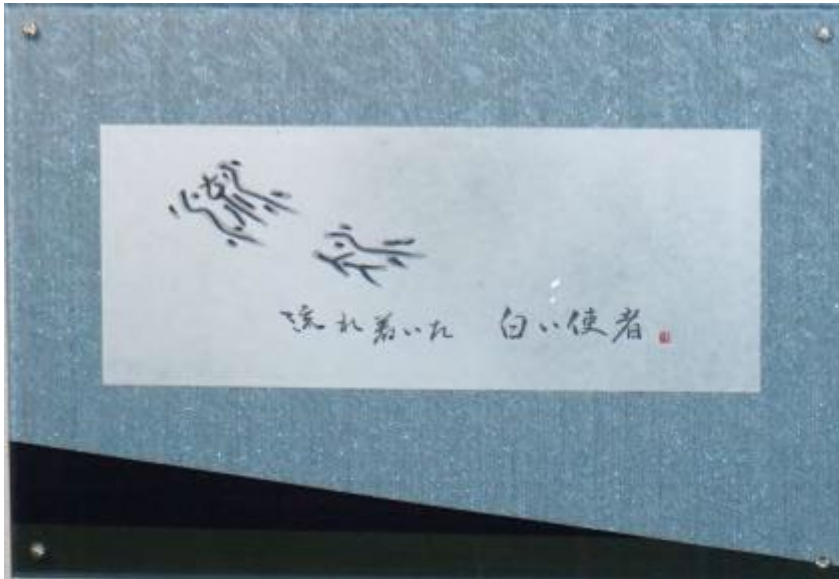 流れ着いた 白い使者